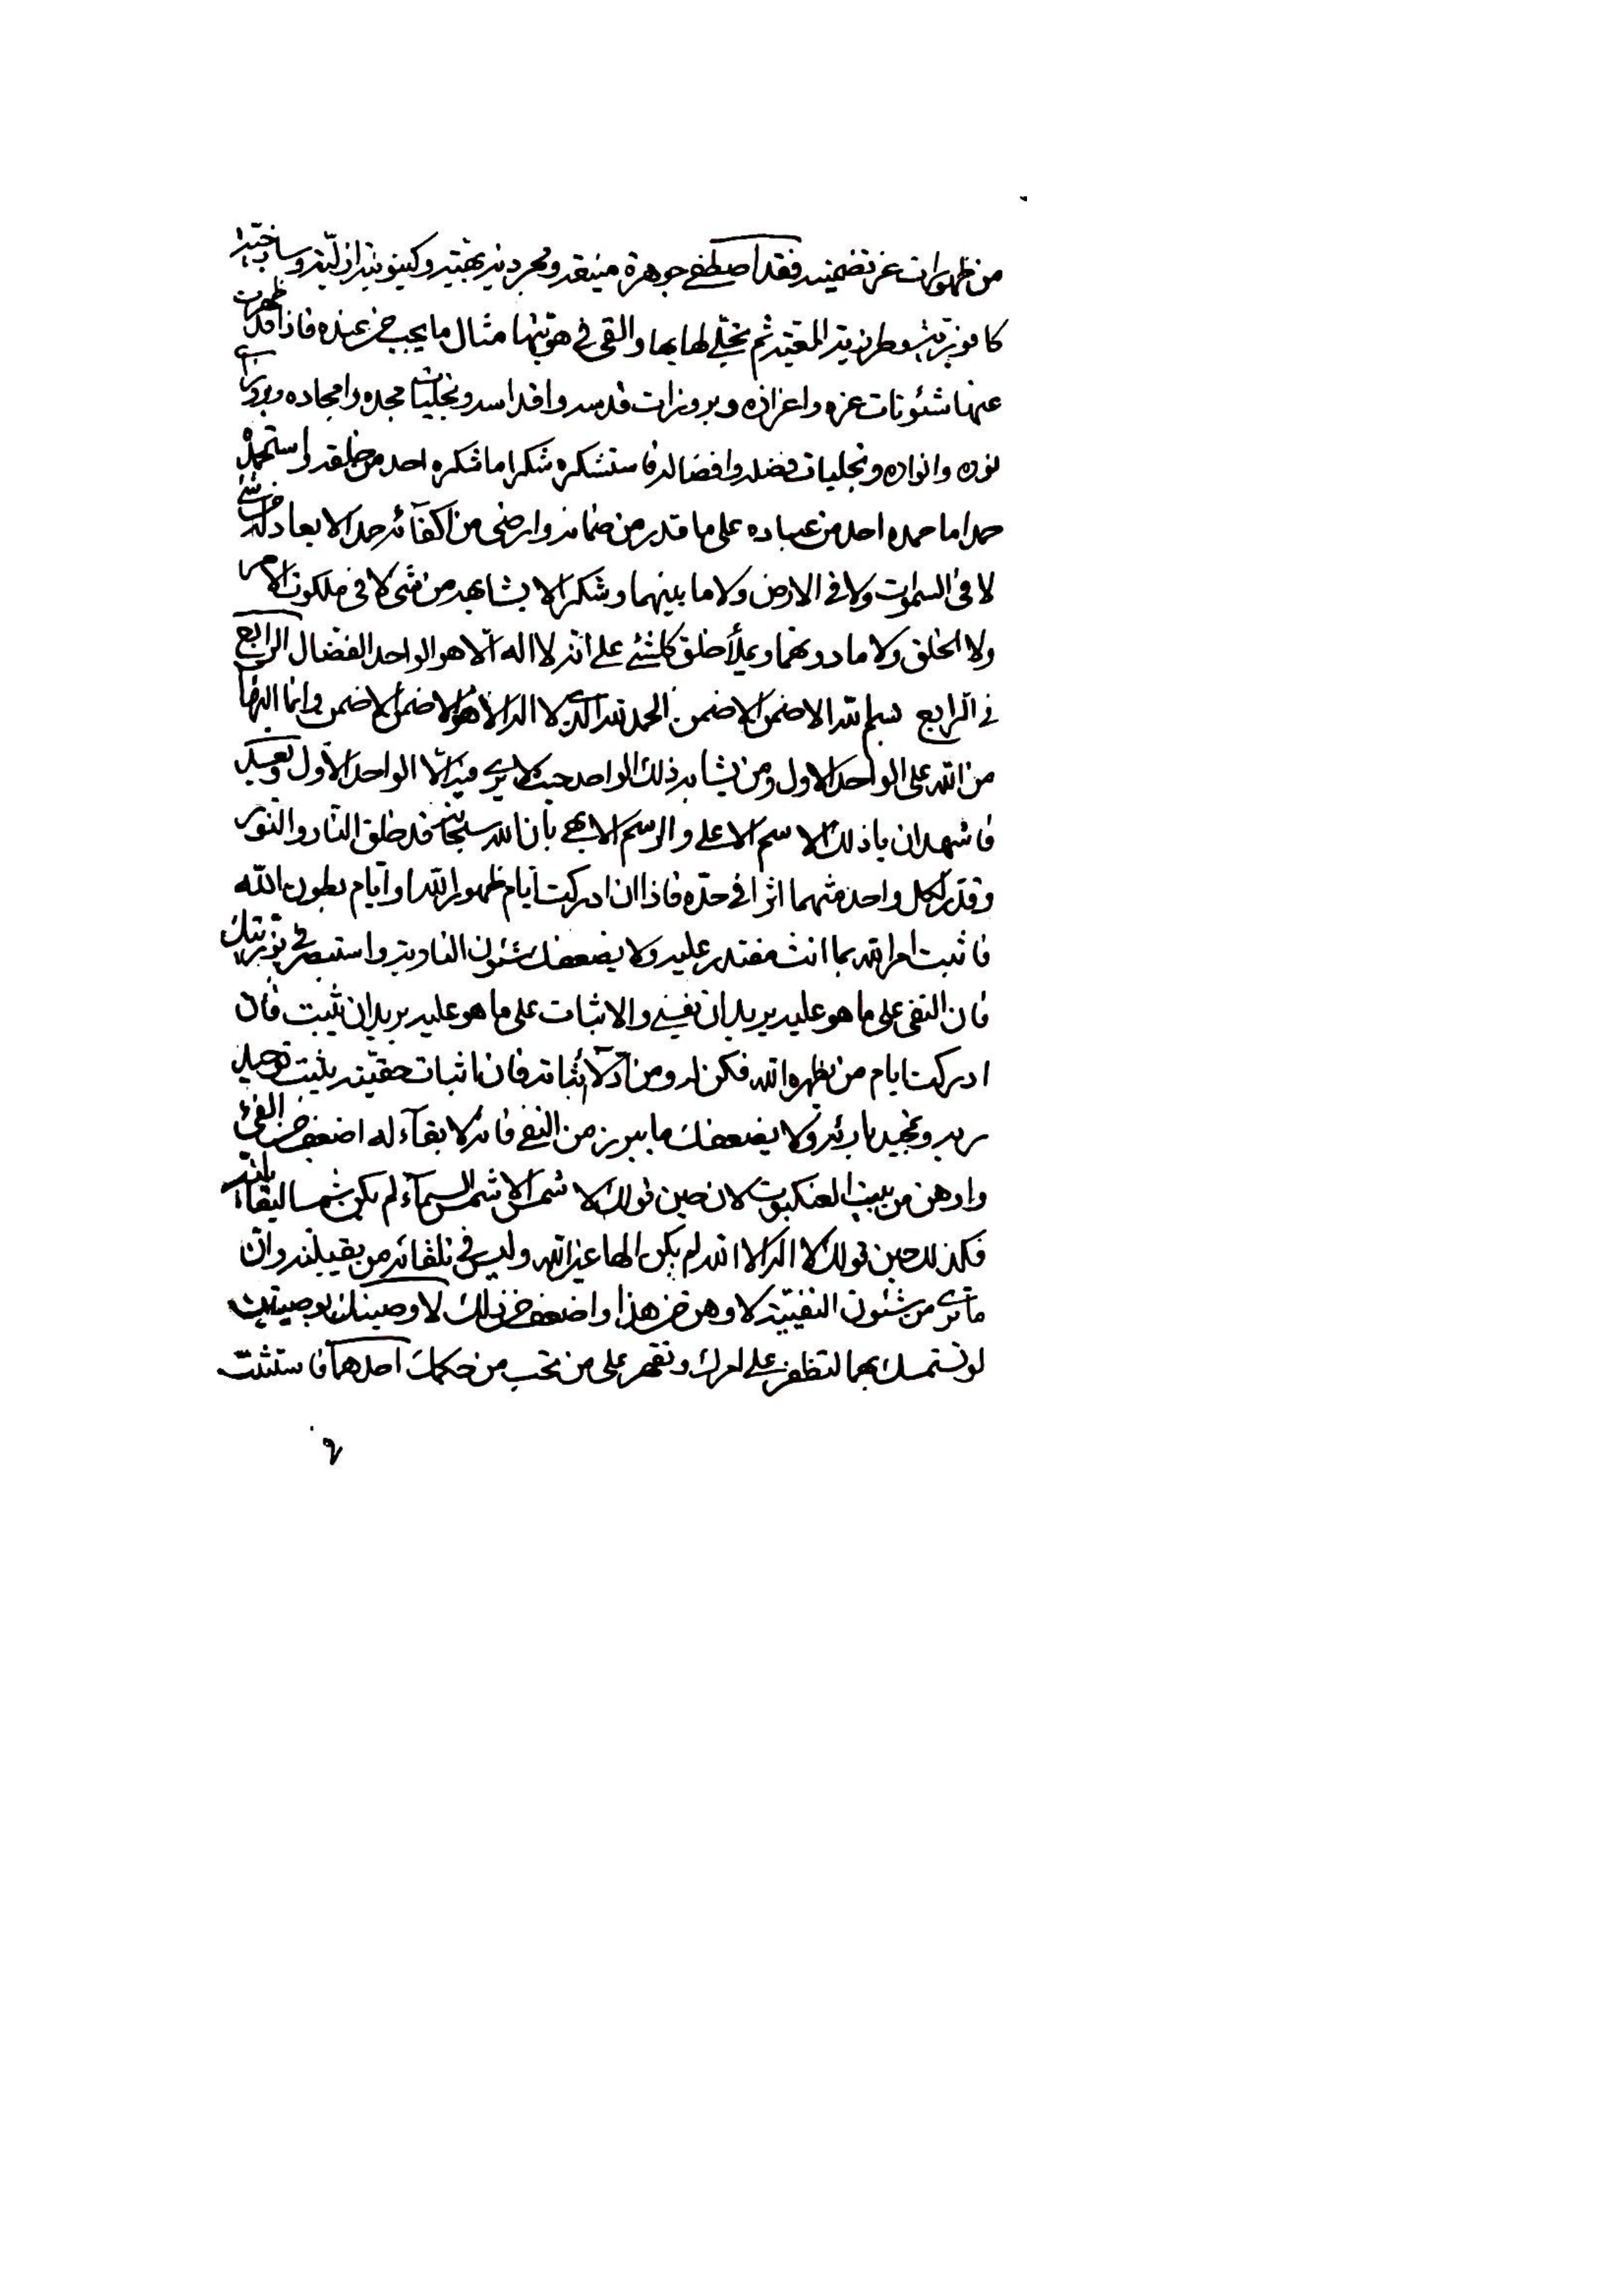 من ظهورات عز تضمنيه فقد اصطفى جوهرة منيعه ومجردية بهيته وكينونية ازلية وساذجية
كافورية ثم تجلى لها بها والقى في هويتها مثال ما يجب من عنده فاذا قد ظهرت
عنها شئونات عزه واعزازه وبروزات قدسه واقداسه وتجليات مجده وامجاده
نوره وانواره وتجليات فضله وافضاله فاستشكره شكرا ما شكره احد من خلقه واستحمده
حمدا ما حمده احد من عباده على ما قدر من ضمانه وارضى من اكفآئه حمدا لا يعادله من شئ
لا في السموات ولا في الارض ولا ما بينهما وشكرا لا يشابهه من شئ لا في ملكوت الامر
ولا الخلق ولا ما دونهما ويملأ خلق كلشئ على انه لا اله الا هو الواحد الفضال الرابع
في الرابع بسم الله الاضمن الاضمن الحمد لله الذي لا اله الا هو الاضمن الاضمن وانما البهآء
من الله على الواحد الاول ومن يشابه ذلك الواحد حيث لا يرى فيه الا الواحد الاول وبعد
فاشهد ان ياذلك الاسم الاعلى والرسم الابهى بان الله سبحانه قد خلق النار والنور
وقدر لكل واحد منهما اثرا في حده فاذا ان ادركت ايام ظهور الله او ايام بطون الله
فاثبت امر الله بما انت مقتدر عليه ولا يضعفك شئون النارية واستبصر في نوريتك
فان النفى على ما هو عليه يريد ان نفيني والاثبات على ما هو عليه يريد ان يثبت فان
ادركت ايام من يظهره الله فكن له ومن ادلآء اثباته فان اثبات حقيته يثبت توحيد
ربه وتمجيد بارئه ولا يضعفك ما يبرز من النفى فانه لا بقآء له اضعف من الفئ
واوهن من بيت العنكبوت لان حين قولك لا شمس الا شمس السمآء لم يكن شمسا لبقآء
فكذلك حين قولك لا اله الا الله لم يكن الها غير الله وليس في تلقائه من بقية وان
ما ترى من شئون النفيية لاوهن من هذا واضعف من ذلك لاوصينك بوصيتين
لو تستمسك بهما لتظفر على امرك وتقهر على من تحب من حكمك احدهما فاستثبت